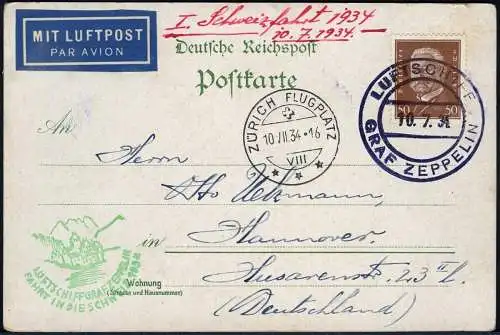 I. Schweizfahrt 1934
10.7.1934.
MIT LUFTPOST
PAR AVION
Deutsche Reichspost
Postkarte
50 50
LUFTSCHIFF
10. 7. 34
GRAF ZEPPELIN
ZÜRICH FLUGPLATZ
10·VII·34·16
VIII
An
Herrn
Otto
in Hannover
Husarenstr. 23 II l.
(Deutschland)
LUFTSCHIFF GRAF ZEPPELIN
FAHRT IN DIE SCHWEIZ 1934
Wohnung
(Straße und Hausnummer)